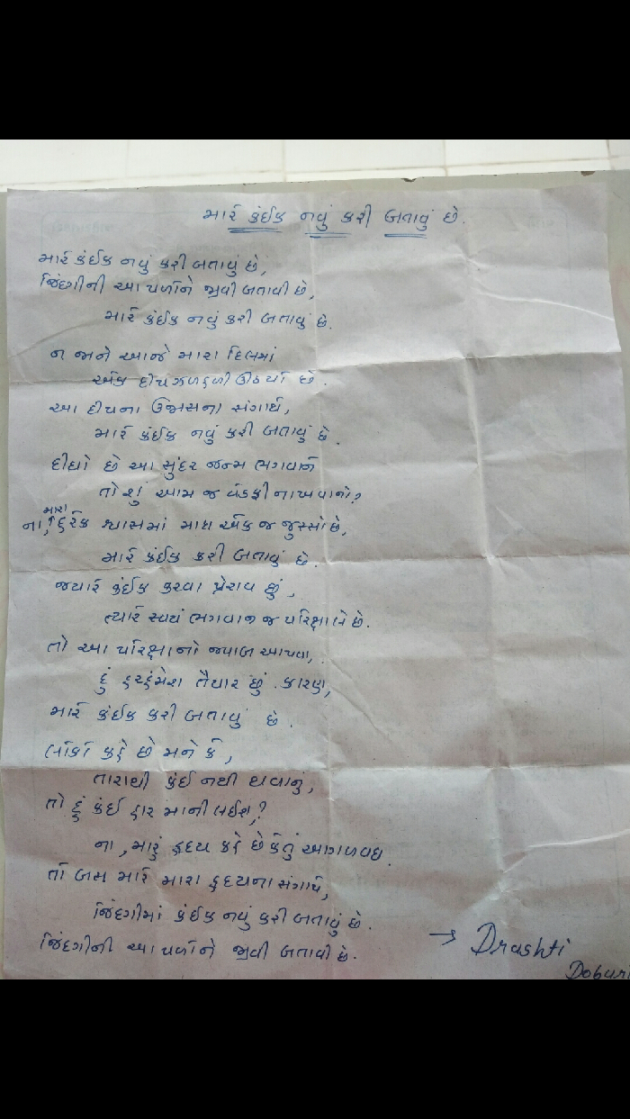 મારે કંઈક નવું કરી બતાવું છે.
મારે કંઈક નવું કરી બતાવું છે,
જિંદગીની આ પળોને જીવી બતાવી છે,
મારે કંઈક નવું કરી બતાવું છે.
ન જાને આજે મારા દિલમાં
એક દીપ ઝળહળી ઊઠયો છે.
આ દીપના ઉજાસના સંગાથે,
મારે કંઈક નવું કરી બતાવું છે.
દીધો છે આ સુંદર જન્મ ભગવાને
તો શું આમ જ વેડફી નાખવાનો?
ના, મારા દરેક શ્વાસમાં માત્ર એક જ જુસ્સો છે,
મારે કંઈક કરી બતાવું છે.
જયારે કંઈક કરવા પ્રેરાવ છું,
ત્યારે સ્વયં ભગવાન જ પરિક્ષા લે છે.
તો આ પરિક્ષાનો જવાબ આપવા,
હું હરહંમેશ તૈયાર છું. કારણ,
મારે કંઈક કરી બતાવું છે.
લોકો કહે છે મને કે,
તારાથી કંઈ નથી થવાનું,
તો હું કંઈ હાર માની લઈશ,?
ના, મારું હૃદય કહે છે કે તું આગળ વધ.
તો બસ મારે મારા હૃદયના સંગાથે,
જિંદગીમાં કંઈક નવું કરી બતાવું છે.
જિંદગીની આ પળોને જીવી બતાવી છે.
→ Drashti